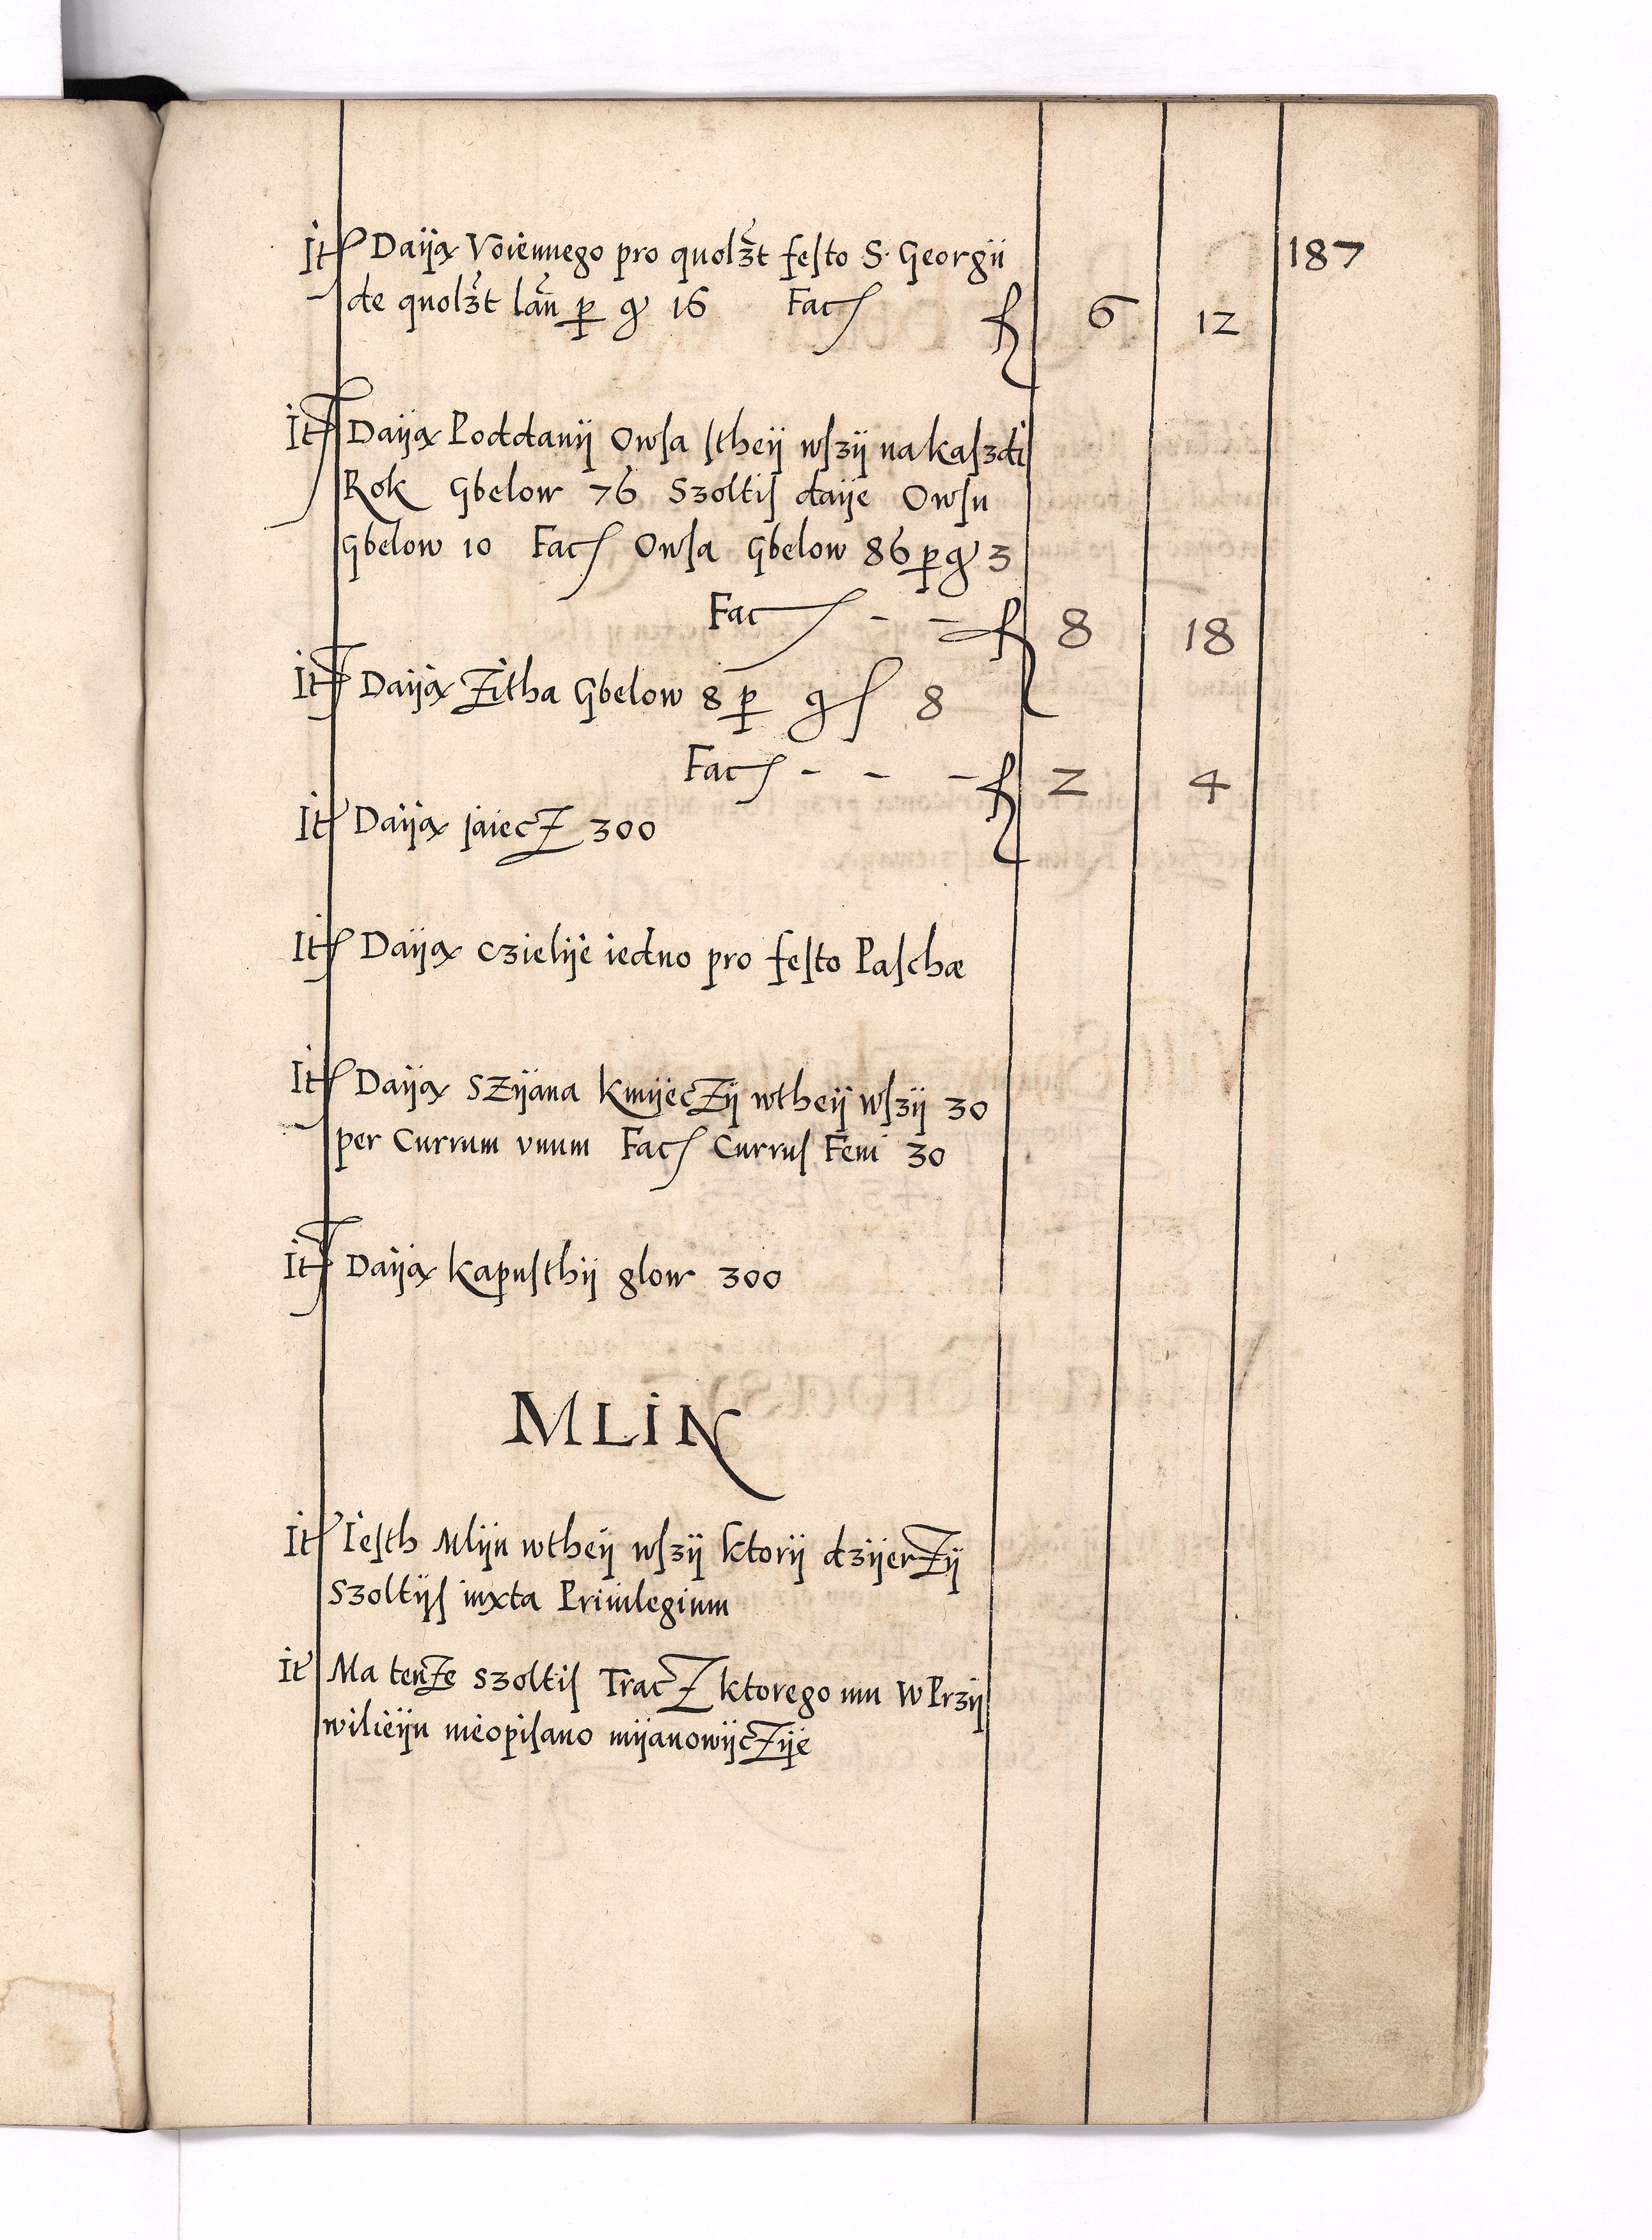 187
It Daiją Voiennego pro quolꝫt festo S. Georgii
de quolꝫt lan̄ ꝑ gͦ 16 Fac f 6 12
It Daiją Poddanij Owsa stheij wszij nakaszdi
Rok Gbelow 76 Szoltis daije Owsu
Gbelow 10 Fac Owsa Gbelow 86 ꝑ g 3
Fac - - f 8 18
It Daiją Zitha Gbelow 8 ꝑ g 8
Fac - - - f 2 4
It Daiją jaiecz 300
It Daiją czielijė iedno pro festo Paschæ
It Daiją Szijana kmijeczij wtheij wszij 30
per Currum vnum Fac Currus Feni 30
It Daiją kapusthij glow 300
MLIN
It Iesth Mlijn wtheij wszij ktorij dzijerzij
Szoltijs iuxta Priuilegium
It Ma tenze Szoltis Tracz ktorego mu w Przij
wilieiju nieopisano mijanowijczije